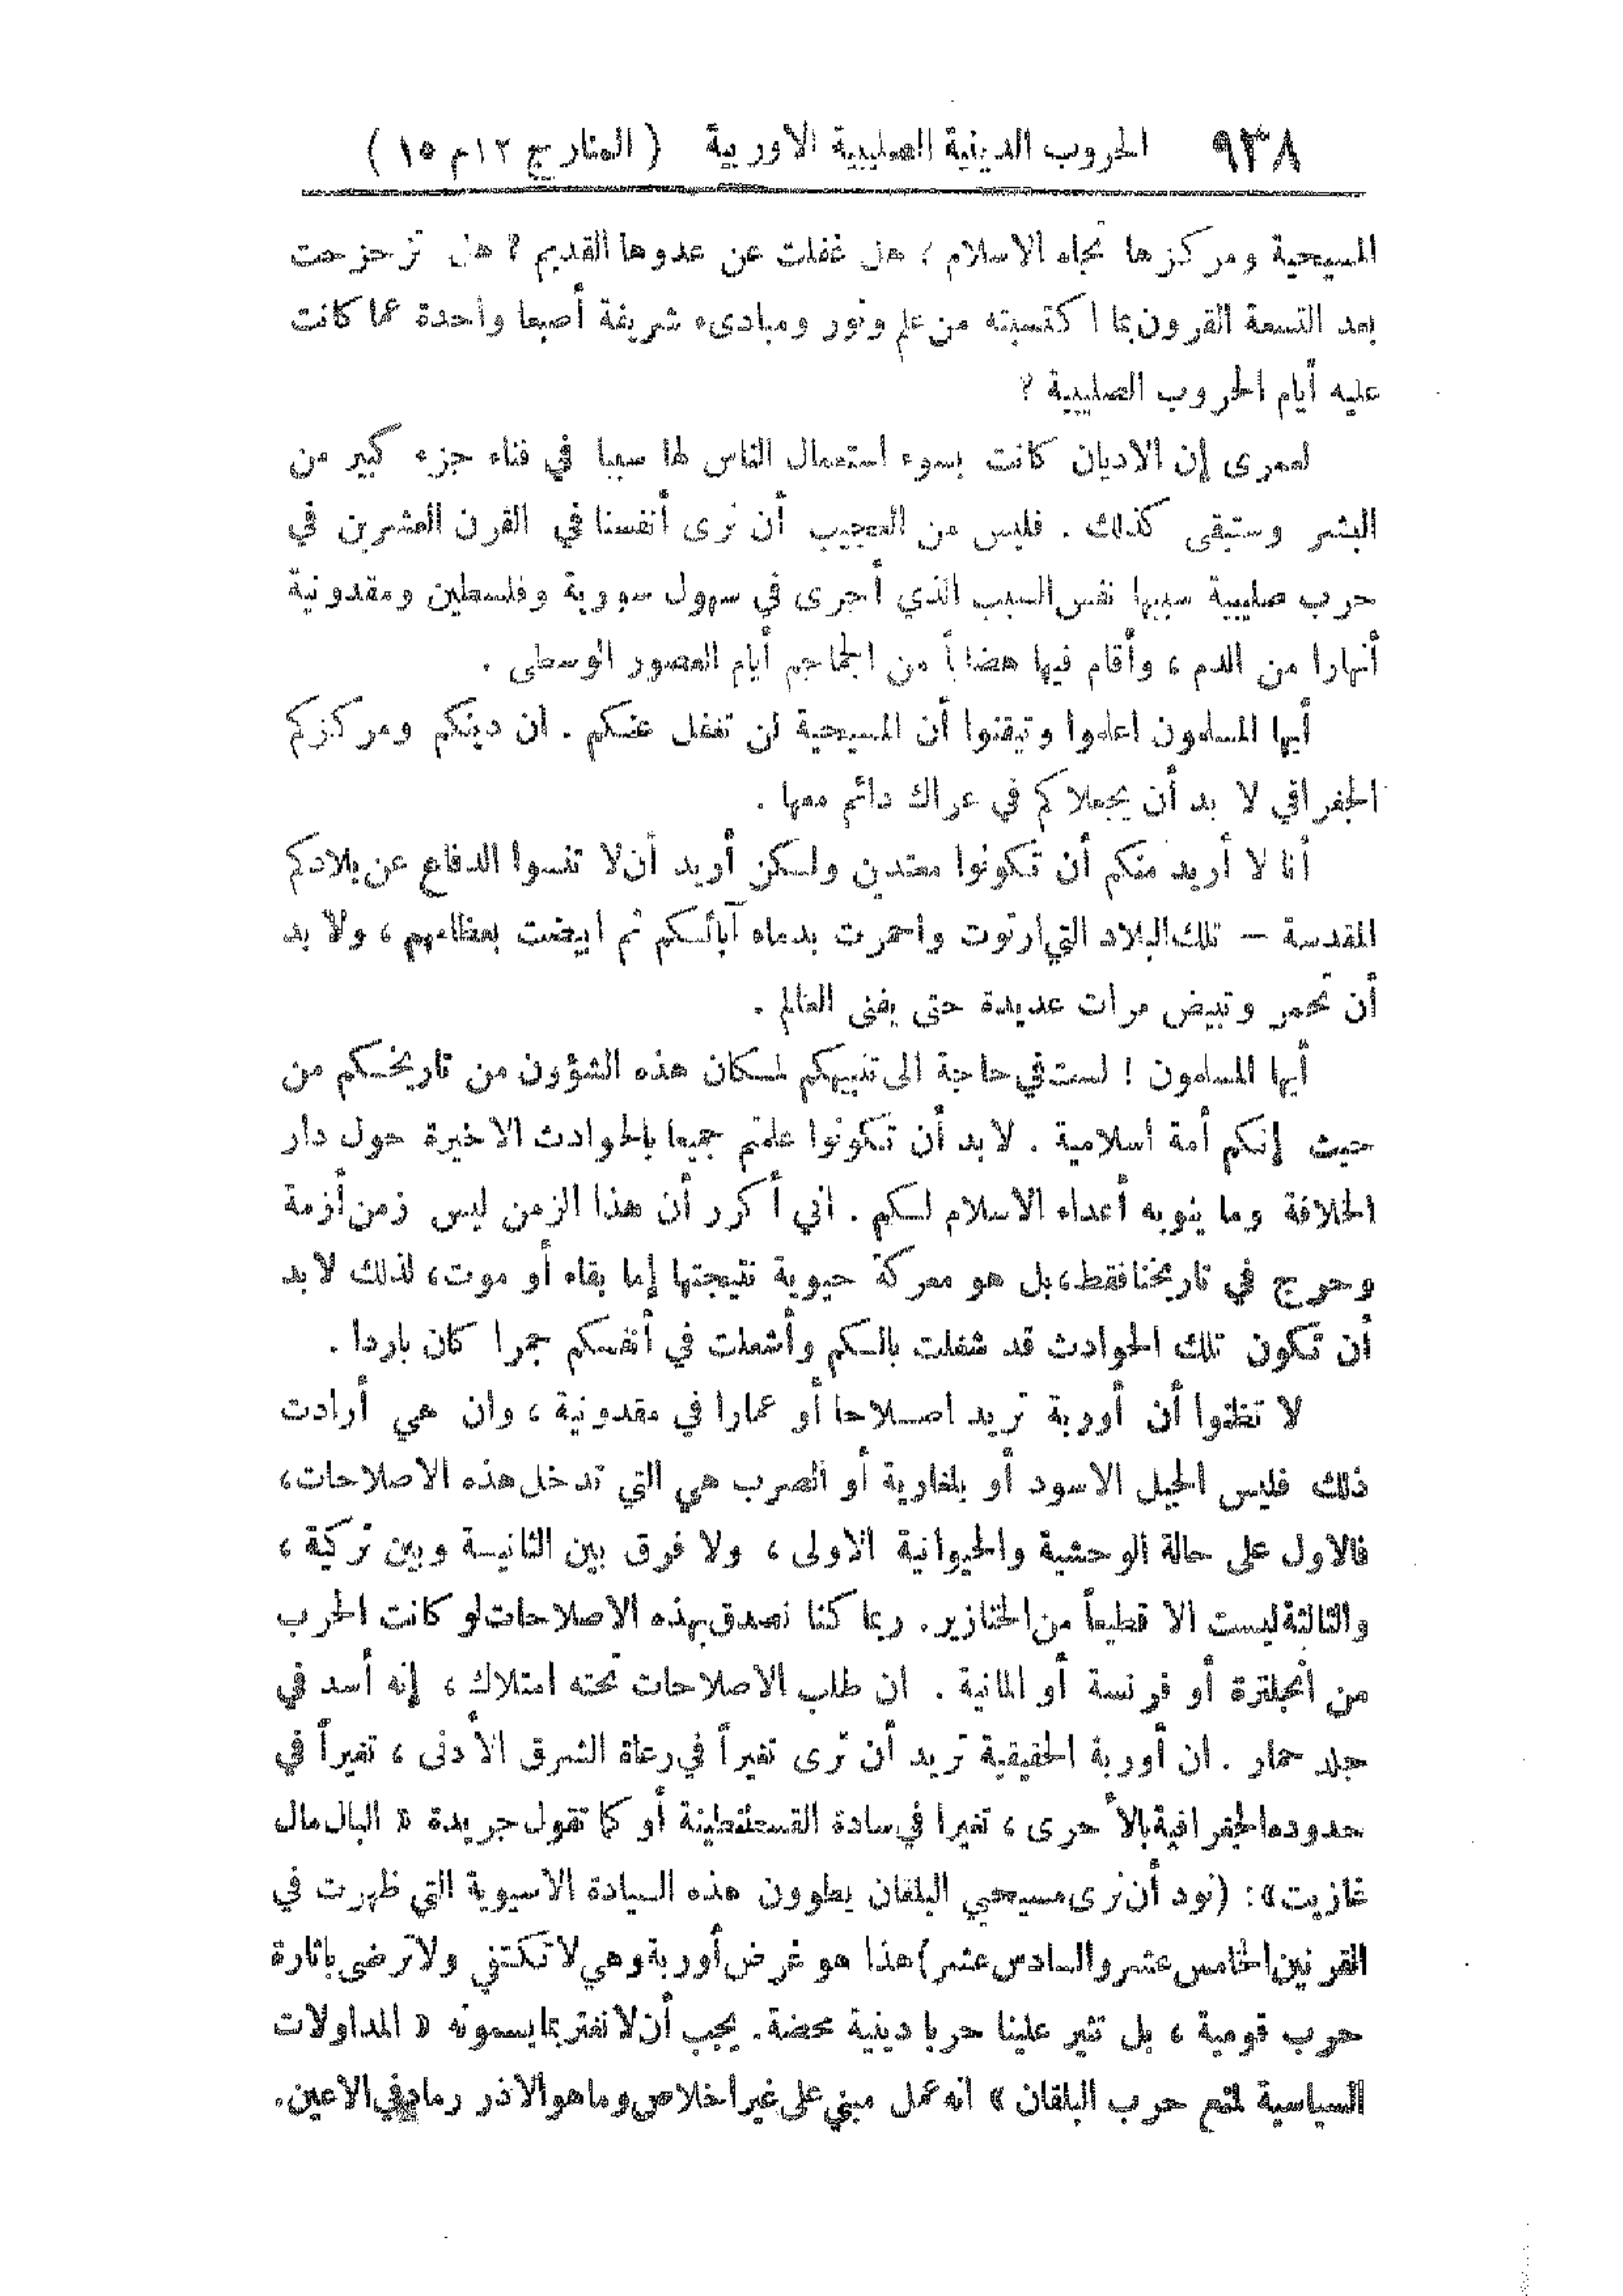 ٩٣٨ الحروب الدينية الصليبية الاوربية ( المنار ج ١٢ م ١٥ )
المسيحية ومركزها تجاه الاسلام ؛ هل غفلت عن عدوها القديم ؟ هل تزحزحت
بعد التسعة القرون بما اكتسبته من علم ونور ومبادىء شريفة أصبعا واحدة عما كانت
عليه أيام الحروب الصليبية ؟
لعمرى إن الاديان كانت بسوء استعمال الناس لها سببا في فناء جزء كبير من
البشر وستبقى كذلك . فليس من العجيب أن نرى أنفسنا في القرن العشرين في
حرب صليبية سببها نفس السبب الذي أجرى في سهول سورية وفلسطين ومقدونية
أنهارا من الدم ، وأقام فيها هضابا من الجماجم أيام العصور الوسطى .
أيها المسلمون اعلموا وتيقنوا أن المسيحية لن تغفل عنكم . ان دينكم ومركزكم
الجغرافي لا بد أن يجعلاكم في عراك دائم معها .
أنا لا أريد منكم أن تكونوا معتدين ولكن أريد أن لا تنسوا الدفاع عن بلادكم
المقدسة – تلك البلاد التي ارتوت واحمرت بدماء آبائكم ثم ابيضت بعظامهم ، ولا بد
أن تحمر وتبيض مرات عديدة حتى يفنى العالم .
أيها المسلمون ! لست في حاجة الى تنبيهكم لمكان هذه الشؤون من تاريخكم من
حيث إنكم أمة اسلامية . لا بد أن تكونوا علمتم جميعا بالحوادث الاخيرة حول دار
الخلافة وما ينويه أعداء الاسلام لكم . اني أكرر أن هذا الزمن ليس زمن أزمة
وحرج في تاريخنا فقط ، بل هو معركة حيوية نتيجتها إما بقاء أو موت ، لذلك لا بد
أن تكون تلك الحوادث قد شغلت بالكم وأشعلت في أنفسكم جمرا كان باردا .
لا تظنوا أن أوربة تريد اصلاحا أو عمارا في مقدونية ، وان هي أرادت
ذلك فليس الجبل الاسود أو بلغارية أو الصرب هي التي تدخل هذه الاصلاحات ،
فالاول على حالة الوحشية والحيوانية الاولى ، ولا فرق بين الثانية وبين تركية ،
والثالثة ليست الا قطيعاً من الخنازير . ربما كنا نصدق بهذه الاصلاحات لو كانت الحرب
من انجلترة أو فرنسة أو المانية . ان طلب الاصلاحات تحته امتلاك ، إنه أسد في
جلد حمار . ان أوربة الحقيقية تريد أن ترى تغيراً في رعاة الشرق الأدنى ، تغيراً في
حدوده الجغرافية بالأحرى ، تغيرا في سادة القسطنطينة أو كما تقول جريدة « البال مال
غازيت » : (نود أن نرى مسيحيي البلقان يطوون هذه السيادة الآسيوية التي ظهرت في
القرنين الخامس عشر والسادس عشر) هذا هو غرض أوربة وهي لا تكتفي ولا ترضى باثارة
حرب قومية ، بل تثير علينا حربا دينية محضة . يجب أن لا نغتر بما يسمونه « المداولات
السياسية لمنع حرب البلقان » انه عمل مبني على غير اخلاص وما هو الا ذر رماد في الاعين .